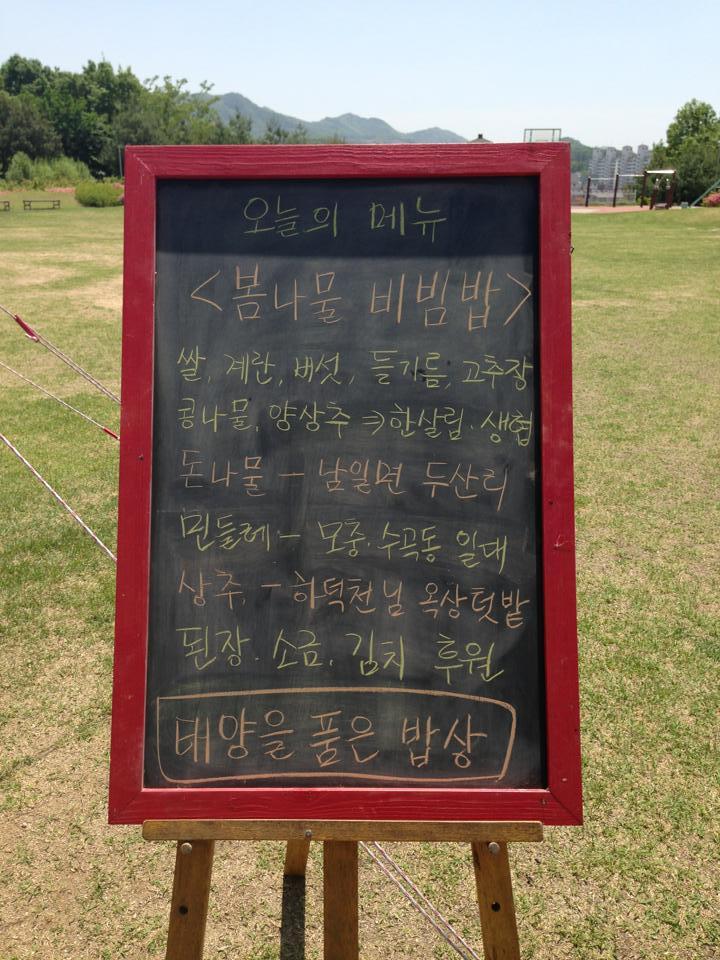 오늘의 메뉴
<봄나물 비빔밥>
쌀, 계란, 버섯, 들기름, 고추장
콩나물, 양상추 ⇒ 한살림. 생협
돈나물 - 남일면 두산리
민들레 - 모충. 수곡동 일대
상추, - 하덕천님 옥상텃밭
된장. 소금. 김치 후원
태양을 품은 밥상